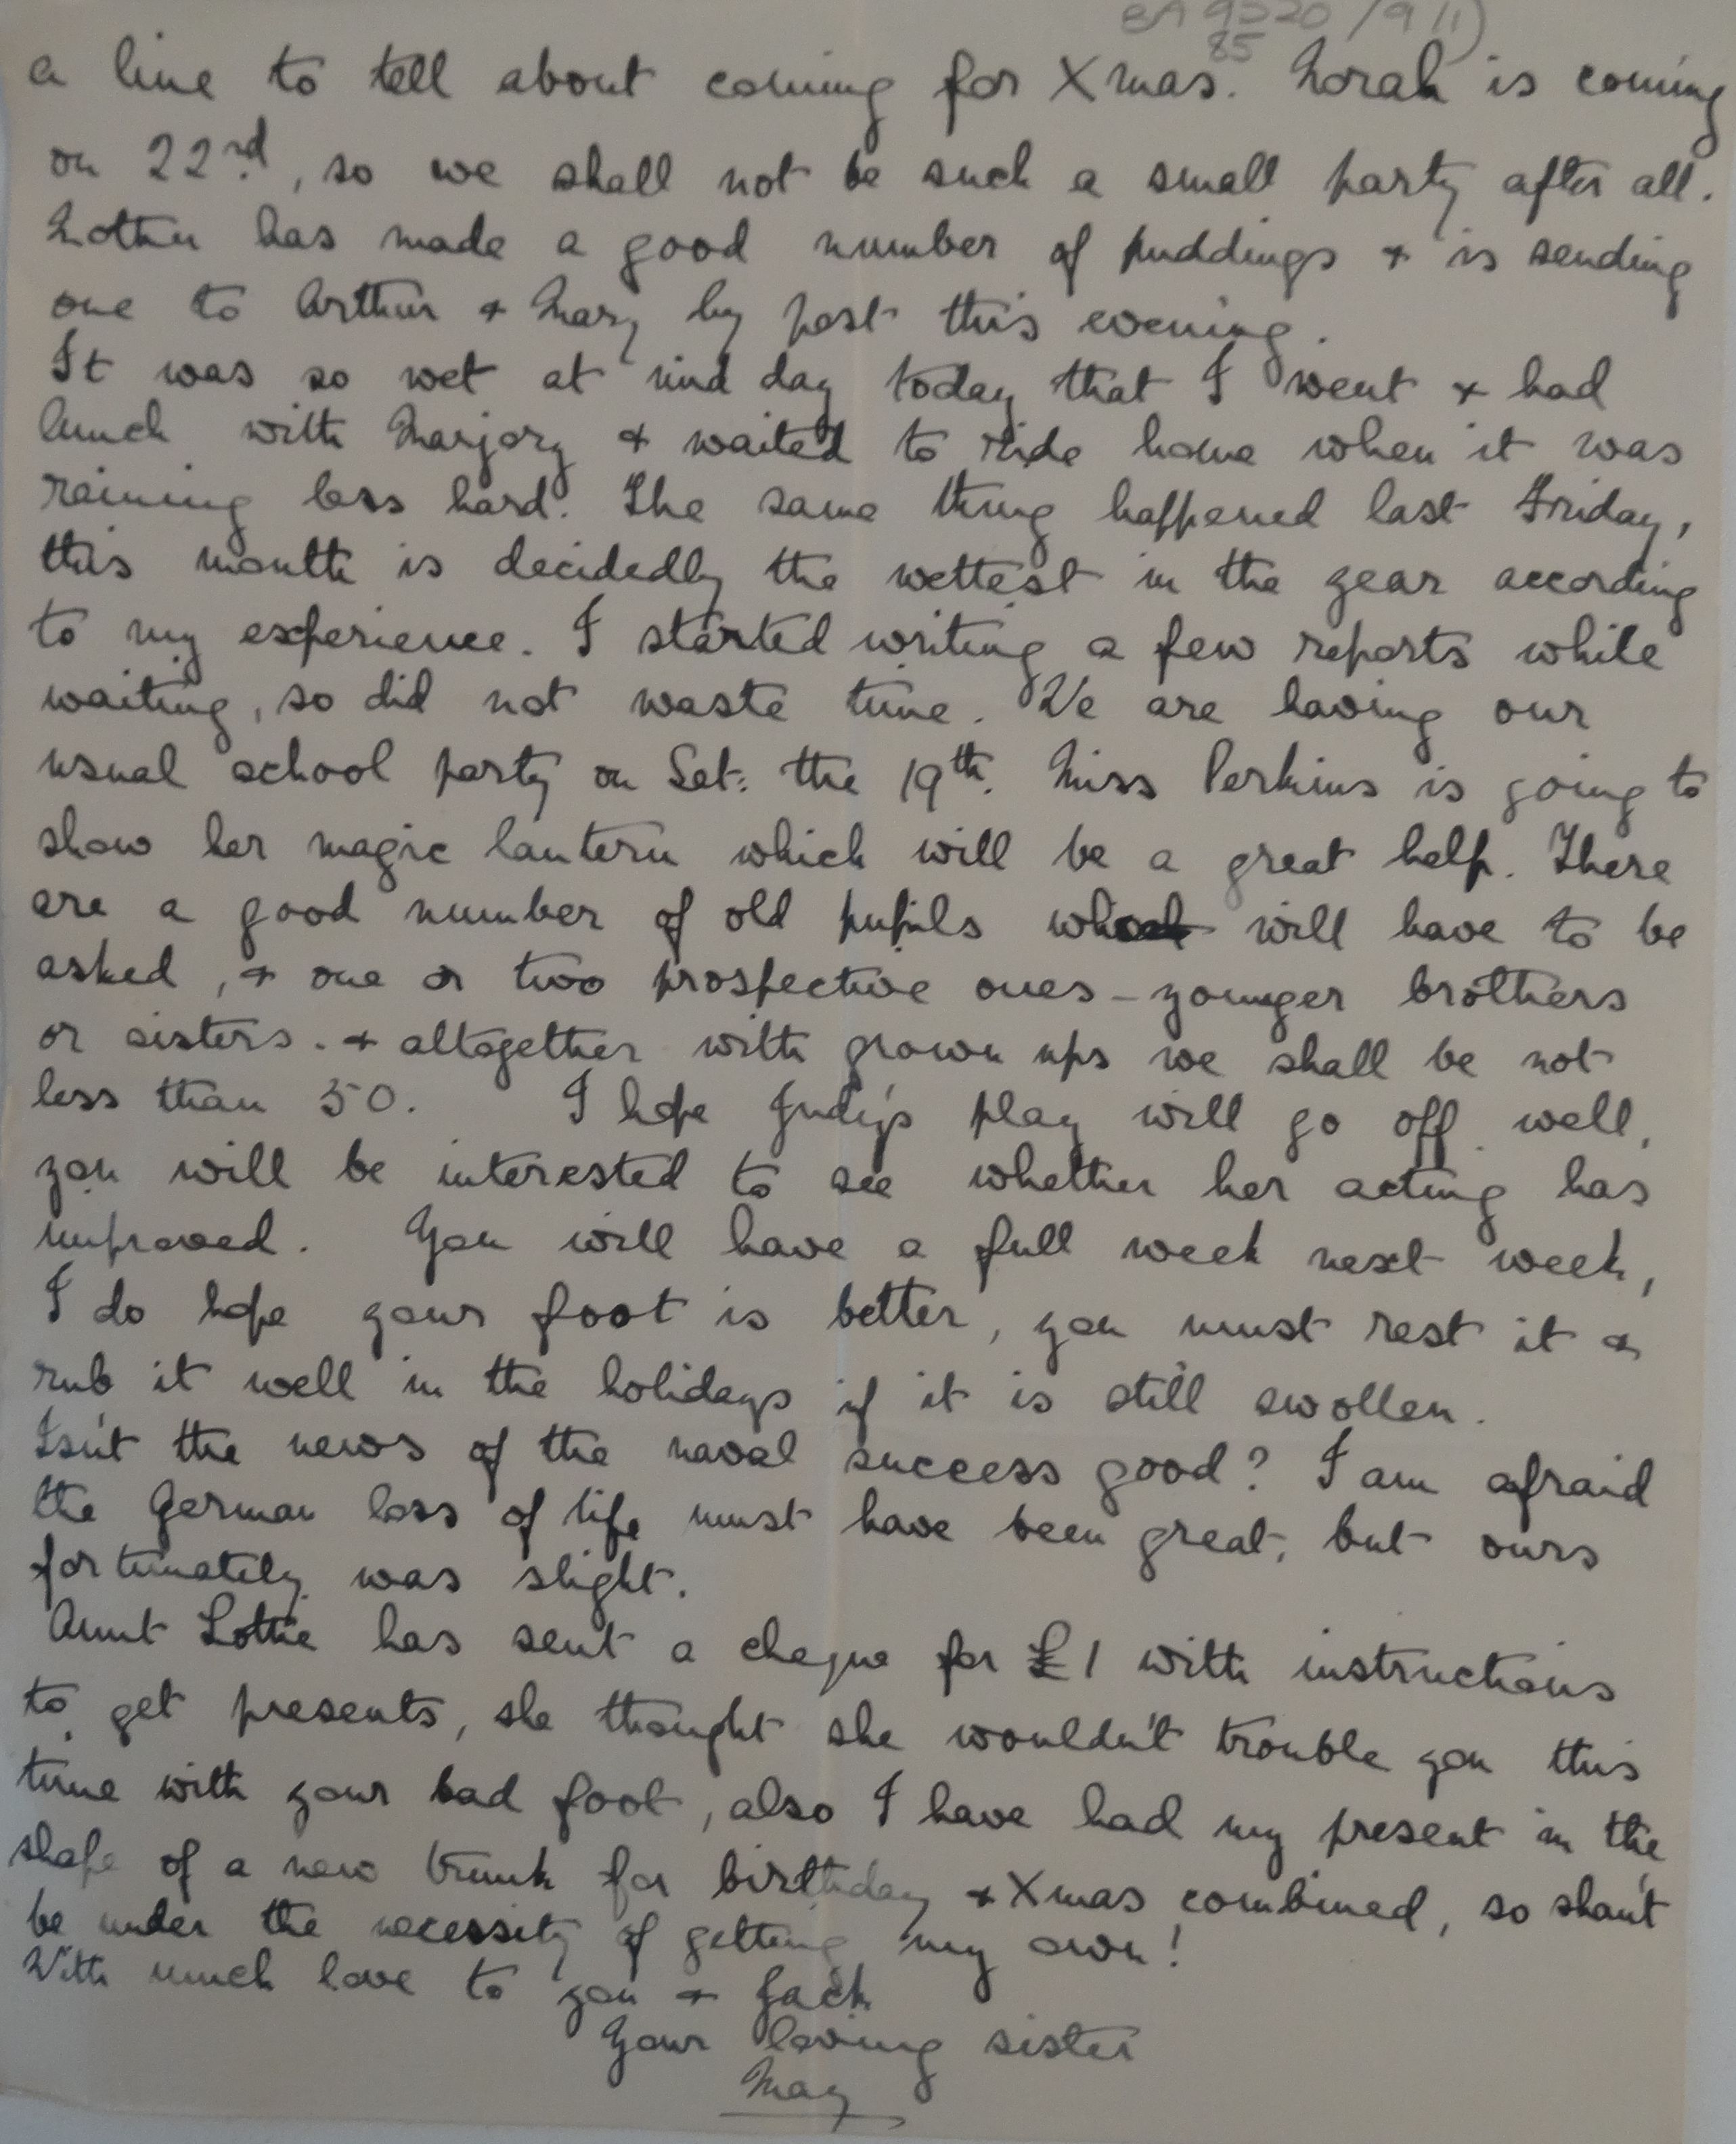 BA 9520/9 (1)
85
a line to tell about coming for Xmas. Norah is coming
on 22nd, so we shall not be such a small party after all.
Mother has made a good number of puddings + is sending
one to Arthur + Mary by post this evening.
It was so wet at mid day today that I went + had
lunch with Marjory + waited to ride home when it was
raining less hard. The same thing happened last Friday,
this month is decidedly the wettest in the year according
to my experience. I started writing a few reports while
waiting, so did not waste time. We are having our
usual school party on Sat: the 19th. Miss Perkins is going to
show her magic lantern which will be a great help. There
are a good number of old pupils who will have to be
asked, + one or two prospective ones - younger brothers
or sisters. + altogether with grown ups we shall be not
less than 50. I hope Judy's play will go off well,
you will be interested to see whether her acting has
improved. You will have a full week next week,
I do hope your foot is better, you must rest it +
rub it well in the holidays if it is still swollen.
Isn't the news of the naval success good? I am afraid
the German loss of life must have been great, but ours
fortunately was slight.
Aunt Lottie has sent a cheque for £1 with instructions
to get presents, she thought she wouldn't trouble you this
time with your bad foot, also I have had my present in the
shape of a new trunk for birthday + Xmas combined, so shan't
be under the necessity of getting my own!
With much love to you + Jack
Your loving sister
May